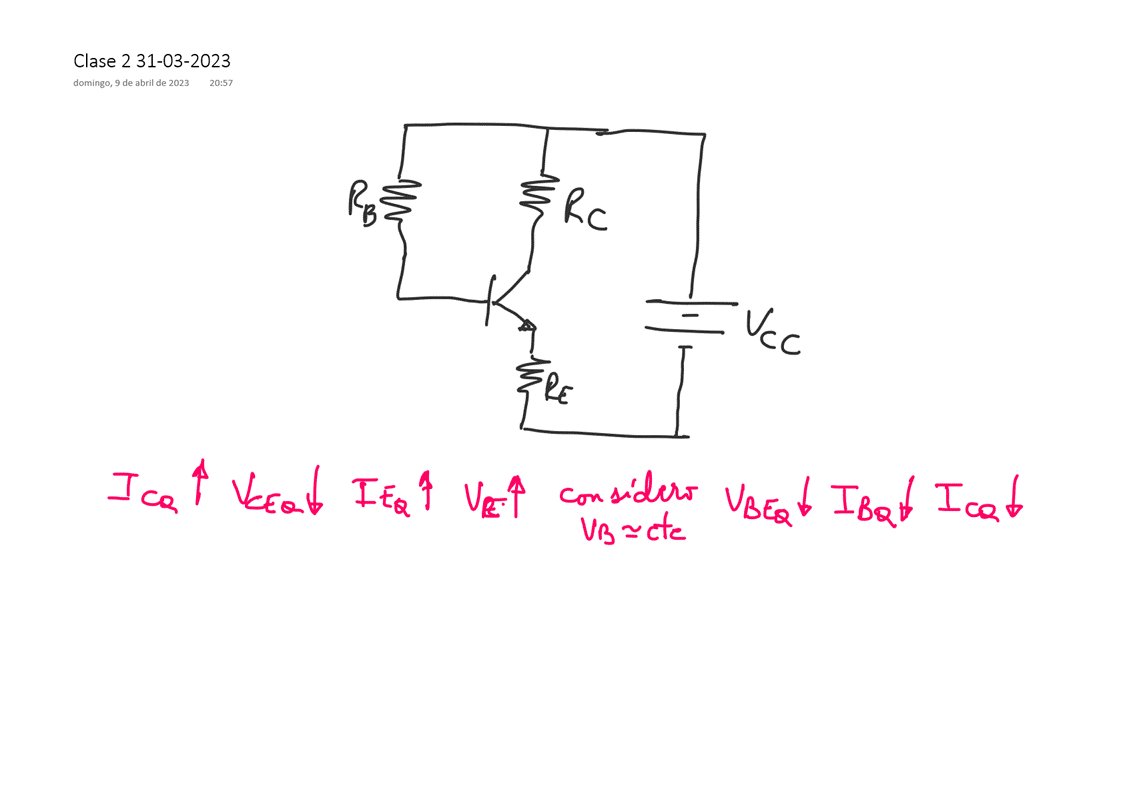 Clase 2 31-03-2023
domingo, 9 de abril de 2023 20:57
RB
RC
VCC
RE
ICQ ↑ VCEQ ↓ IEQ ↑ VE ↑ considero VBEQ ↓ IBQ ↓ ICQ ↓
VB ≃ cte